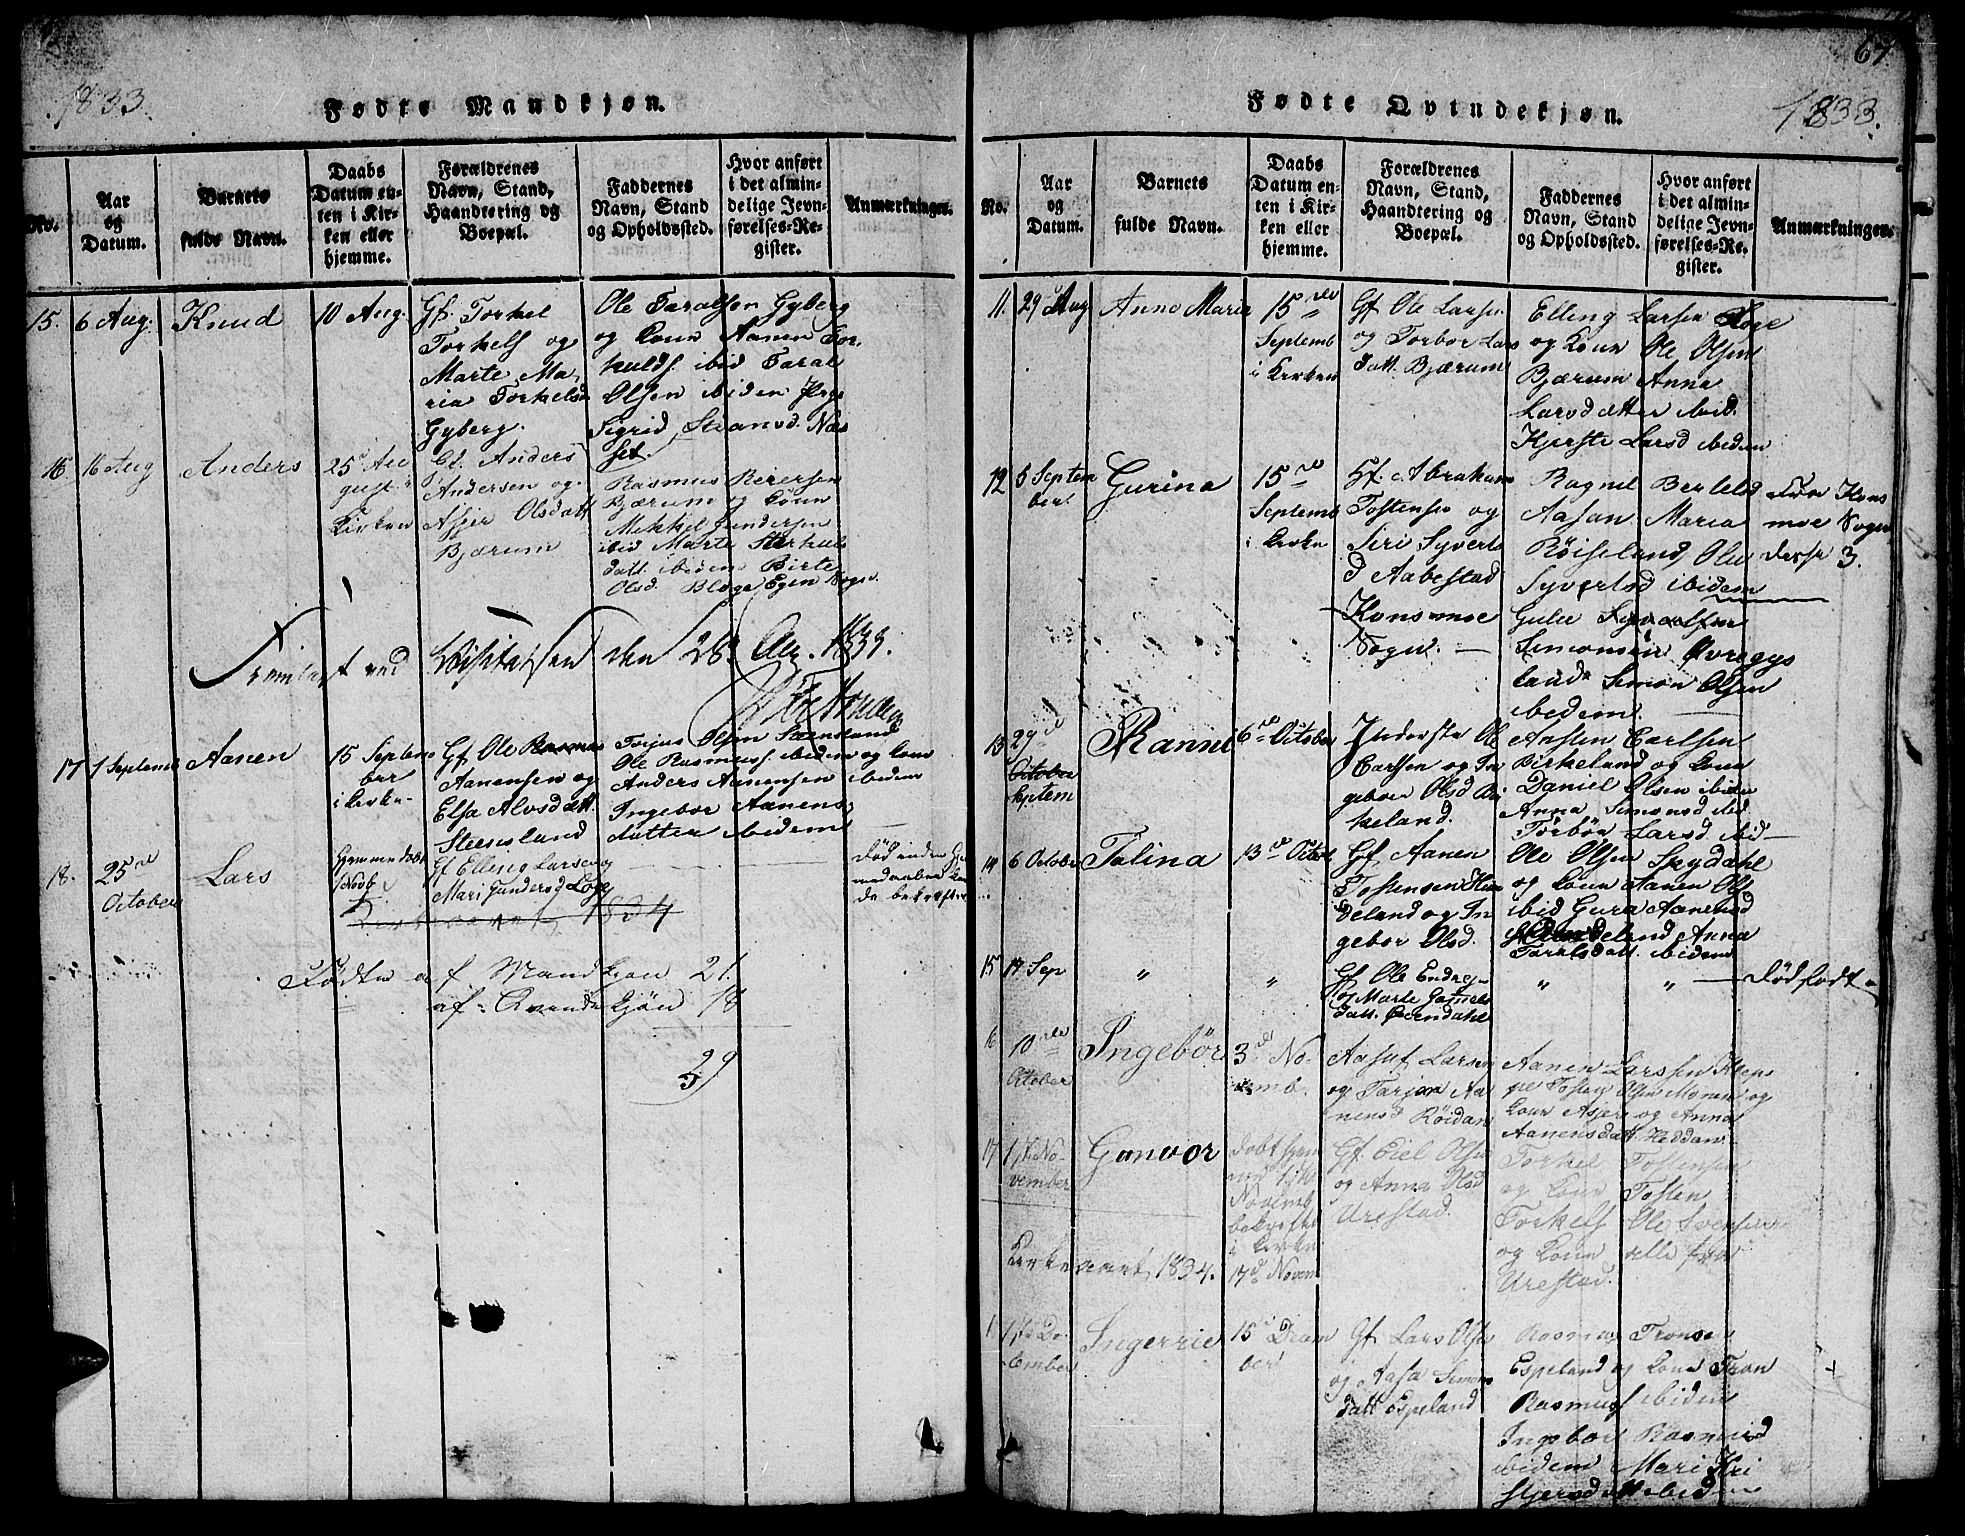 67.
1833.
Fødte Mandkjøn.
No.
Aar
og
Datum.
Barnets
fulde Navn.
Daabs
Datum en-
ten i Kir-
ken eller
hjemme.
Forældrenes
Navn, Stand,
Haandtering og
Boepæl.
Faddernes
Navn, Stand
og Opholdssted.
Hvor anført
i det almin-
delige Jevn-
førelses-Re-
gister.
Anmærkninger.
15. 6 Aug.
Knud
10 Aug.
Gf. Torkel
Torkels og
Marte Ma
ria Torkelsd
Gyberg.
Ole Taralsen Gyberg
og Kone Aanen Tor
kulds ibid Taral
Olsen ibiden Jbgr
Sigrid Steansd. Næs
set.
16. 16 Aug
Anders
25 Au
gust i
Kirken
Gf. Anders
Andersen og
Asjer Olsdatt
Bjærum
Rasmus Reiersen
Bjærum og Kone
Mikkel Gundersen
ibid Marte Terkels
datt. ibidem Birte
Olsd. Bloge Egen Sogn.
ved Visitatsen den 28 1833.
17 1 Septemb
Aanen
15 Septem
ber
i Kirke
Gf Ole Rasmus
Aanensen og
Elsa Alvsdatt.
Steensland
Torjus Olsen Steensland
Ole Rasmuss. ibidem og Kone
Anders Aanensen ibidem
Ingebor Aanens
datter ibidem
18. 25de
October
Lars
Hjemmedøbt
Gf Elling Larsen og
Mari Gundersd Løge
Død inden
Kirkeaaret 1834
Fødte af Mandkjøn 21.
af Qvindekjøn 18
39
Fødte Qvindekjøn.
1833.
No.
Aar
og
Datum.
Barnets
fulde Navn.
Daabs
Datum en-
ten i Kir-
ken eller
hjemme.
Forældrenes
Navn, Stand,
Haandtering og
Boepæl.
Faddernes
Navn, Stand
og Opholdssted.
Hvor anført
i det almin-
delige Jevn-
førelses-Re-
gister.
Anmærkninger.
11. 29 Aug
Anne Marie
15de
Septemb
i Kirken
Gf Ole Larsen
og Torbor Lars
datt. Bjærum
Elling Larsen Løge
og Kone Ole Olsen
Bjærum Anna
Larsdatter ibid.
Kjerste Larsd ibidem
12 5 Septem
ber.
Gurina
15de
Septemb
i Kirke
Gf. Abraham
Tostensen og
Siri Syverts
d Aabestad
Konsmoe
Sogn.
Ragnil Bertelsd
Aasan Maria
Røiseland, Ole
Syvertsd ibidem
Gulee
Simonsen Øvregys
land Simon Olsen
ibidem
fra Kons
moe Sogn
disse 3.
13 29de
October
Septem
Ranni
6de October
Inderste Ole
Carlsen og In
gebor Olsd Bir
keland.
Ansten Carlsen
Birkeland og Kone
Daniel Olsen ibidem
Anna Simonsd ibid
Torbør Larsd ibid
14 6 October
Talina
13de October
Gf. Aanen
Tostensen
deland og In
gebor Olsd.
Ole Olsen Spydahl
og Kone Aanen Ols
ibid Gura Aanensd
deland Anna
Taralsdatt. ibidem
15 14 Sep
"
"
Gf Ole Endre
og Marte Gamels
datt. Øvendahl
"
"
Dødfødt
16 10de
October
Ingebør
3de No
vemb.
Aasuf Larsen
og Tarjer Aa
nensd Røidan
Aanen Larssen Klep
pe Tosten Olsen Monen og
Kone Asjer og Anna
Aanensdatt Heddan
17 1ste No
vember
Gunvor
Døbt hjem
me 1ste
Novemb
bekræftet
i Kirke
17d Novem
Gf. Eiel Olsen
og Anna Olsd
Urestad.
Torkel Tostensen
og Kone Tosten
Torkels Ole Svensen
og Kone alle fra
Urestad.
Kirkeaaret 1834.
1 1ste De
cember
Ingerrie
15de Decem
ber
Gf. Lars Olsen
og Aasa Simons
datt Espeland
Rasmus Tronsen
Espeland og Kone Tron
Rasmuss ibidem
Ingebor Rasmusd
ibidem Mari Kri
stjersdatt ibidem